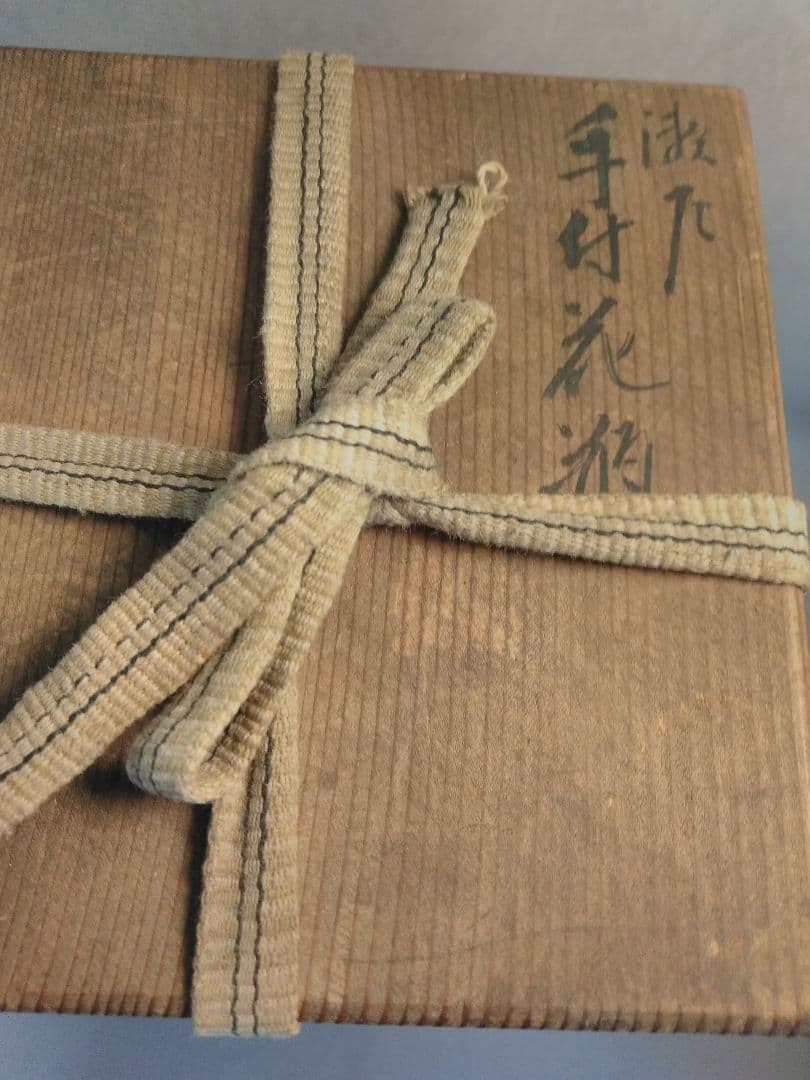 瀬戸
手付花瓶